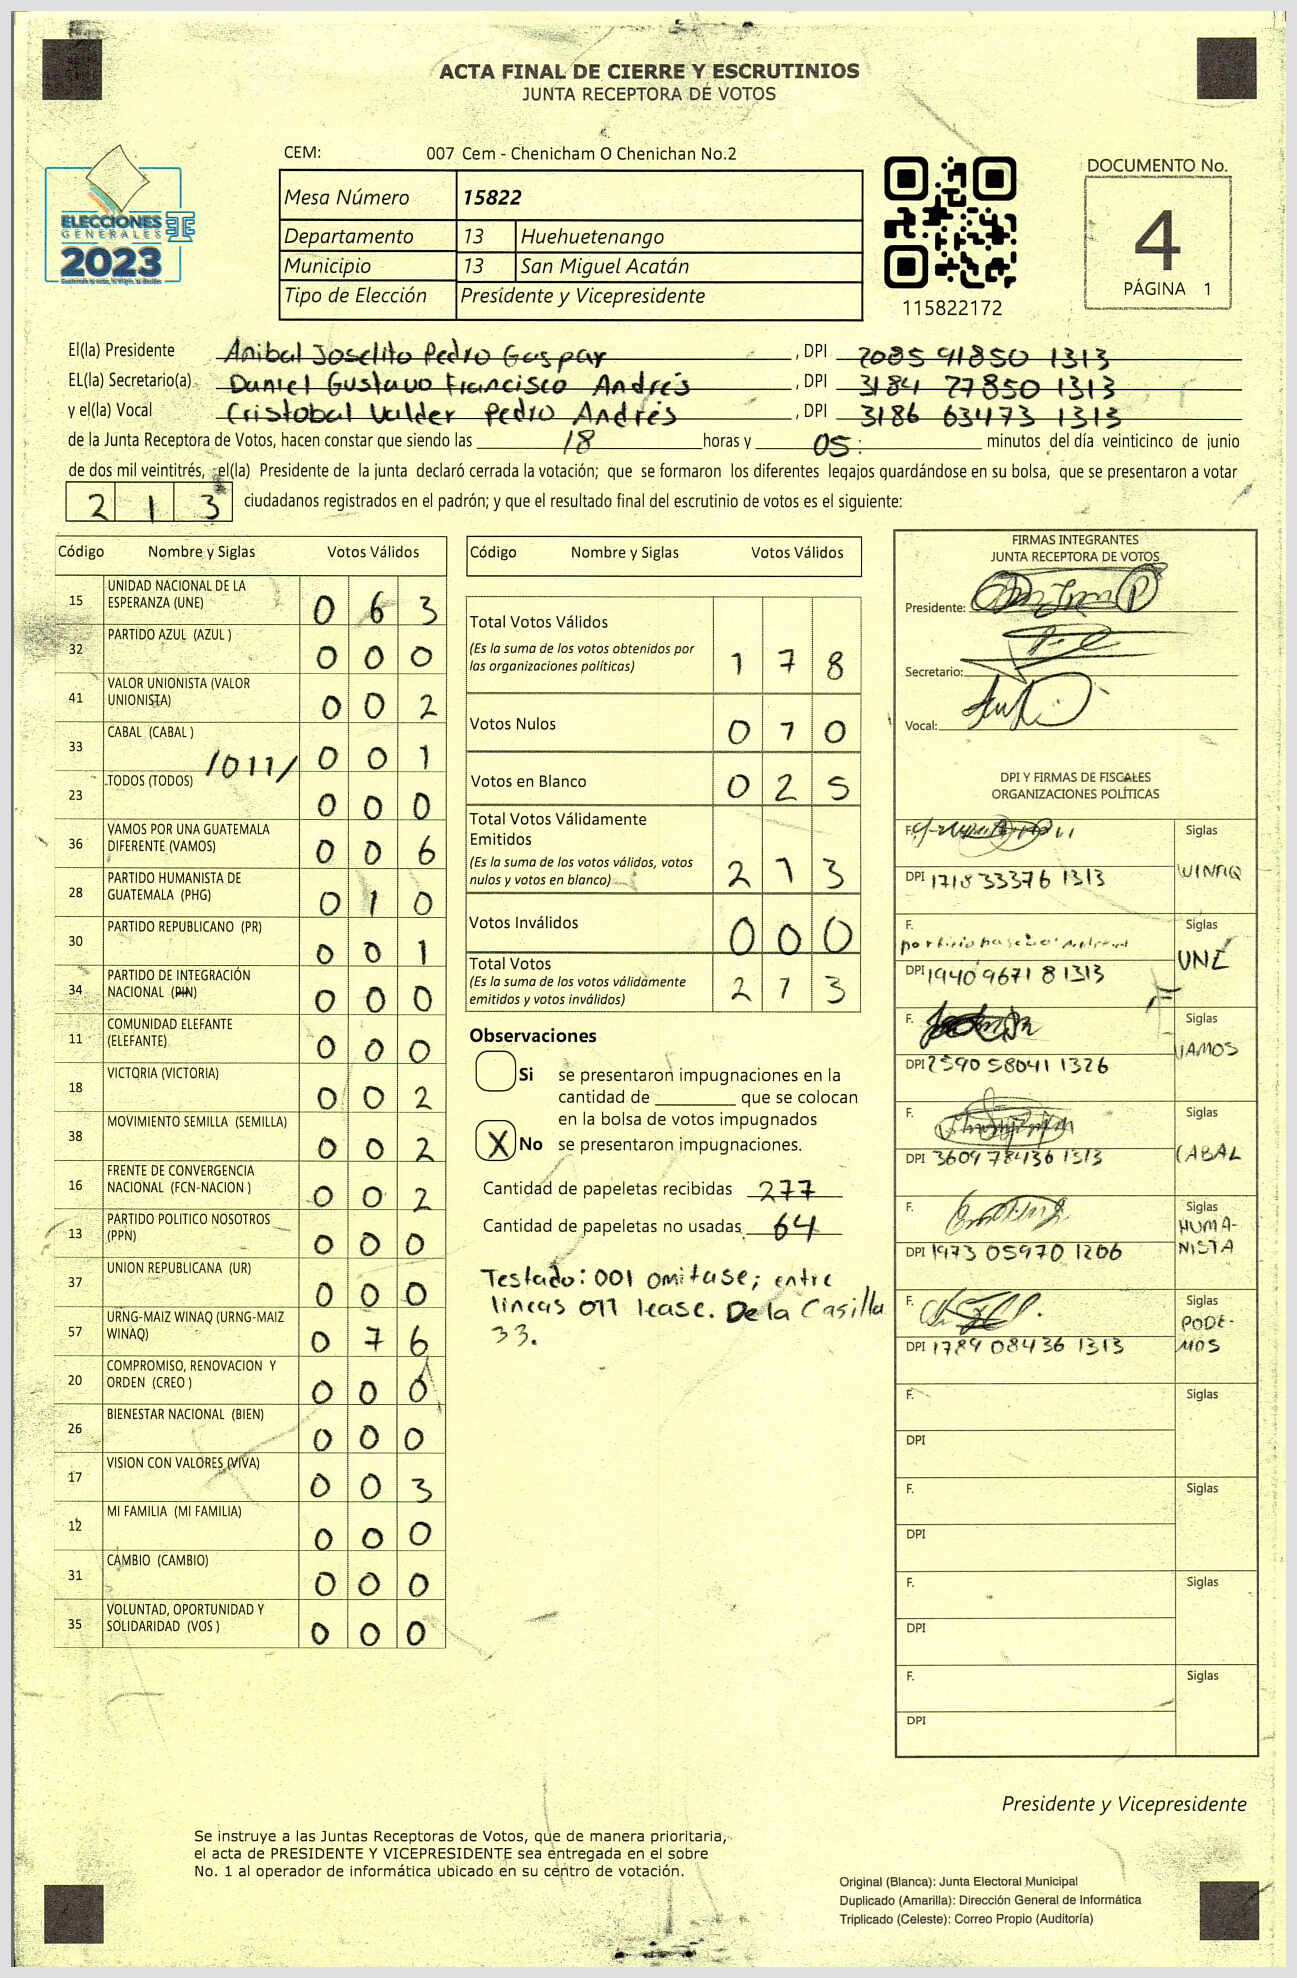 ACTA FINAL DE CIERRE Y ESCRUTINIOS
JUNTA RECEPTORA DE VOTOS
CEM: 007 Cem - Chenicham O Chenichan No.2
ELECCIONES
GENERALES
2023
Mesa Número 15822
Departamento 13 Huehuetenango
Municipio 13 San Miguel Acatán
Tipo de Elección Presidente y Vicepresidente
115822172
DOCUMENTO No.
4
PÁGINA 1
El(la) Presidente Anibal Joselito Pedro Gaspar, DPI 2085 91850 1313
EL(la) Secretario(a) Daniel Gustavo Francisco Andrés, DPI 3184 27850 1313
y el(la) Vocal Cristobal Valder Pedro Andrés, DPI 3186 63473 1313
de la Junta Receptora de Votos, hacen constar que siendo las 18 horas y 05: minutos del día veinticinco de junio
de dos mil veintitrés, el(la) Presidente de la junta declaró cerrada la votación; que se formaron los diferentes legajos guardándose en su bolsa, que se presentaron a votar
213 ciudadanos registrados en el padrón; y que el resultado final del escrutinio de votos es el siguiente:
Código Nombre y Siglas Votos Válidos
15 UNIDAD NACIONAL DE LA ESPERANZA (UNE) 0 6 3
32 PARTIDO AZUL (AZUL ) 0 0 0
41 VALOR UNIONISTA (VALOR UNIONISTA) 0 0 2
33 CABAL (CABAL ) /011/ 0 0 1
23 TODOS (TODOS) 0 0 0
36 VAMOS POR UNA GUATEMALA DIFERENTE (VAMOS) 0 0 6
28 PARTIDO HUMANISTA DE GUATEMALA (PHG) 0 1 0
30 PARTIDO REPUBLICANO (PR) 0 0 1
34 PARTIDO DE INTEGRACIÓN NACIONAL (PIN) 0 0 0
11 COMUNIDAD ELEFANTE (ELEFANTE) 0 0 0
18 VICTORIA (VICTORIA) 0 0 2
38 MOVIMIENTO SEMILLA (SEMILLA) 0 0 2
16 FRENTE DE CONVERGENCIA NACIONAL (FCN-NACION ) 0 0 2
13 PARTIDO POLITICO NOSOTROS (PPN) 0 0 0
37 UNION REPUBLICANA (UR) 0 0 0
57 URNG-MAIZ WINAQ (URNG-MAIZ WINAQ) 0 7 6
20 COMPROMISO, RENOVACION Y ORDEN (CREO ) 0 0 0
26 BIENESTAR NACIONAL (BIEN) 0 0 0
17 VISION CON VALORES (VIVA) 0 0 3
12 MI FAMILIA (MI FAMILIA) 0 0 0
31 CAMBIO (CAMBIO) 0 0 0
35 VOLUNTAD, OPORTUNIDAD Y SOLIDARIDAD (VOS ) 0 0 0
Código Nombre y Siglas Votos Válidos
Total Votos Válidos
(Es la suma de los votos obtenidos por
las organizaciones políticas) 1 7 8
Votos Nulos 0 1 0
Votos en Blanco 0 2 5
Total Votos Válidamente
Emitidos
(Es la suma de los votos válidos, votos
nulos y votos en blanco) 2 1 3
Votos Inválidos 0 0 0
Total Votos
(Es la suma de los votos válidamente
emitidos y votos inválidos) 2 1 3
Observaciones
Si se presentaron impugnaciones en la
cantidad de ________ que se colocan
en la bolsa de votos impugnados
X No se presentaron impugnaciones.
Cantidad de papeletas recibidas 277
Cantidad de papeletas no usadas 64
Testado: 001 omitase; entre
lineas 011 lease. De la Casilla
33.
FIRMAS INTEGRANTES
JUNTA RECEPTORA DE VOTOS
Presidente:
Secretario:
Vocal:
DPI Y FIRMAS DE FISCALES
ORGANIZACIONES POLÍTICAS
F. Siglas
DPI 1718 33376 1313 WINAQ
F. Siglas
DPI 1940 9671 8 1313 UNE
F. Siglas
DPI 2590 58041 1326 VAMOS
F. Siglas
DPI 3609 78436 1313 CABAL
F. Siglas
DPI 1973 05970 1206 HUMA-
NISTA
F. Siglas
DPI 1789 08436 1313 PODE-
MOS
F. Siglas
DPI
F. Siglas
DPI
F. Siglas
DPI
F. Siglas
DPI
Presidente y Vicepresidente
Se instruye a las Juntas Receptoras de Votos, que de manera prioritaria,
el acta de PRESIDENTE Y VICEPRESIDENTE sea entregada en el sobre
No. 1 al operador de informática ubicado en su centro de votación.
Original (Blanca): Junta Electoral Municipal
Duplicado (Amarilla): Dirección General de Informática
Triplicado (Celeste): Correo Propio (Auditoría)